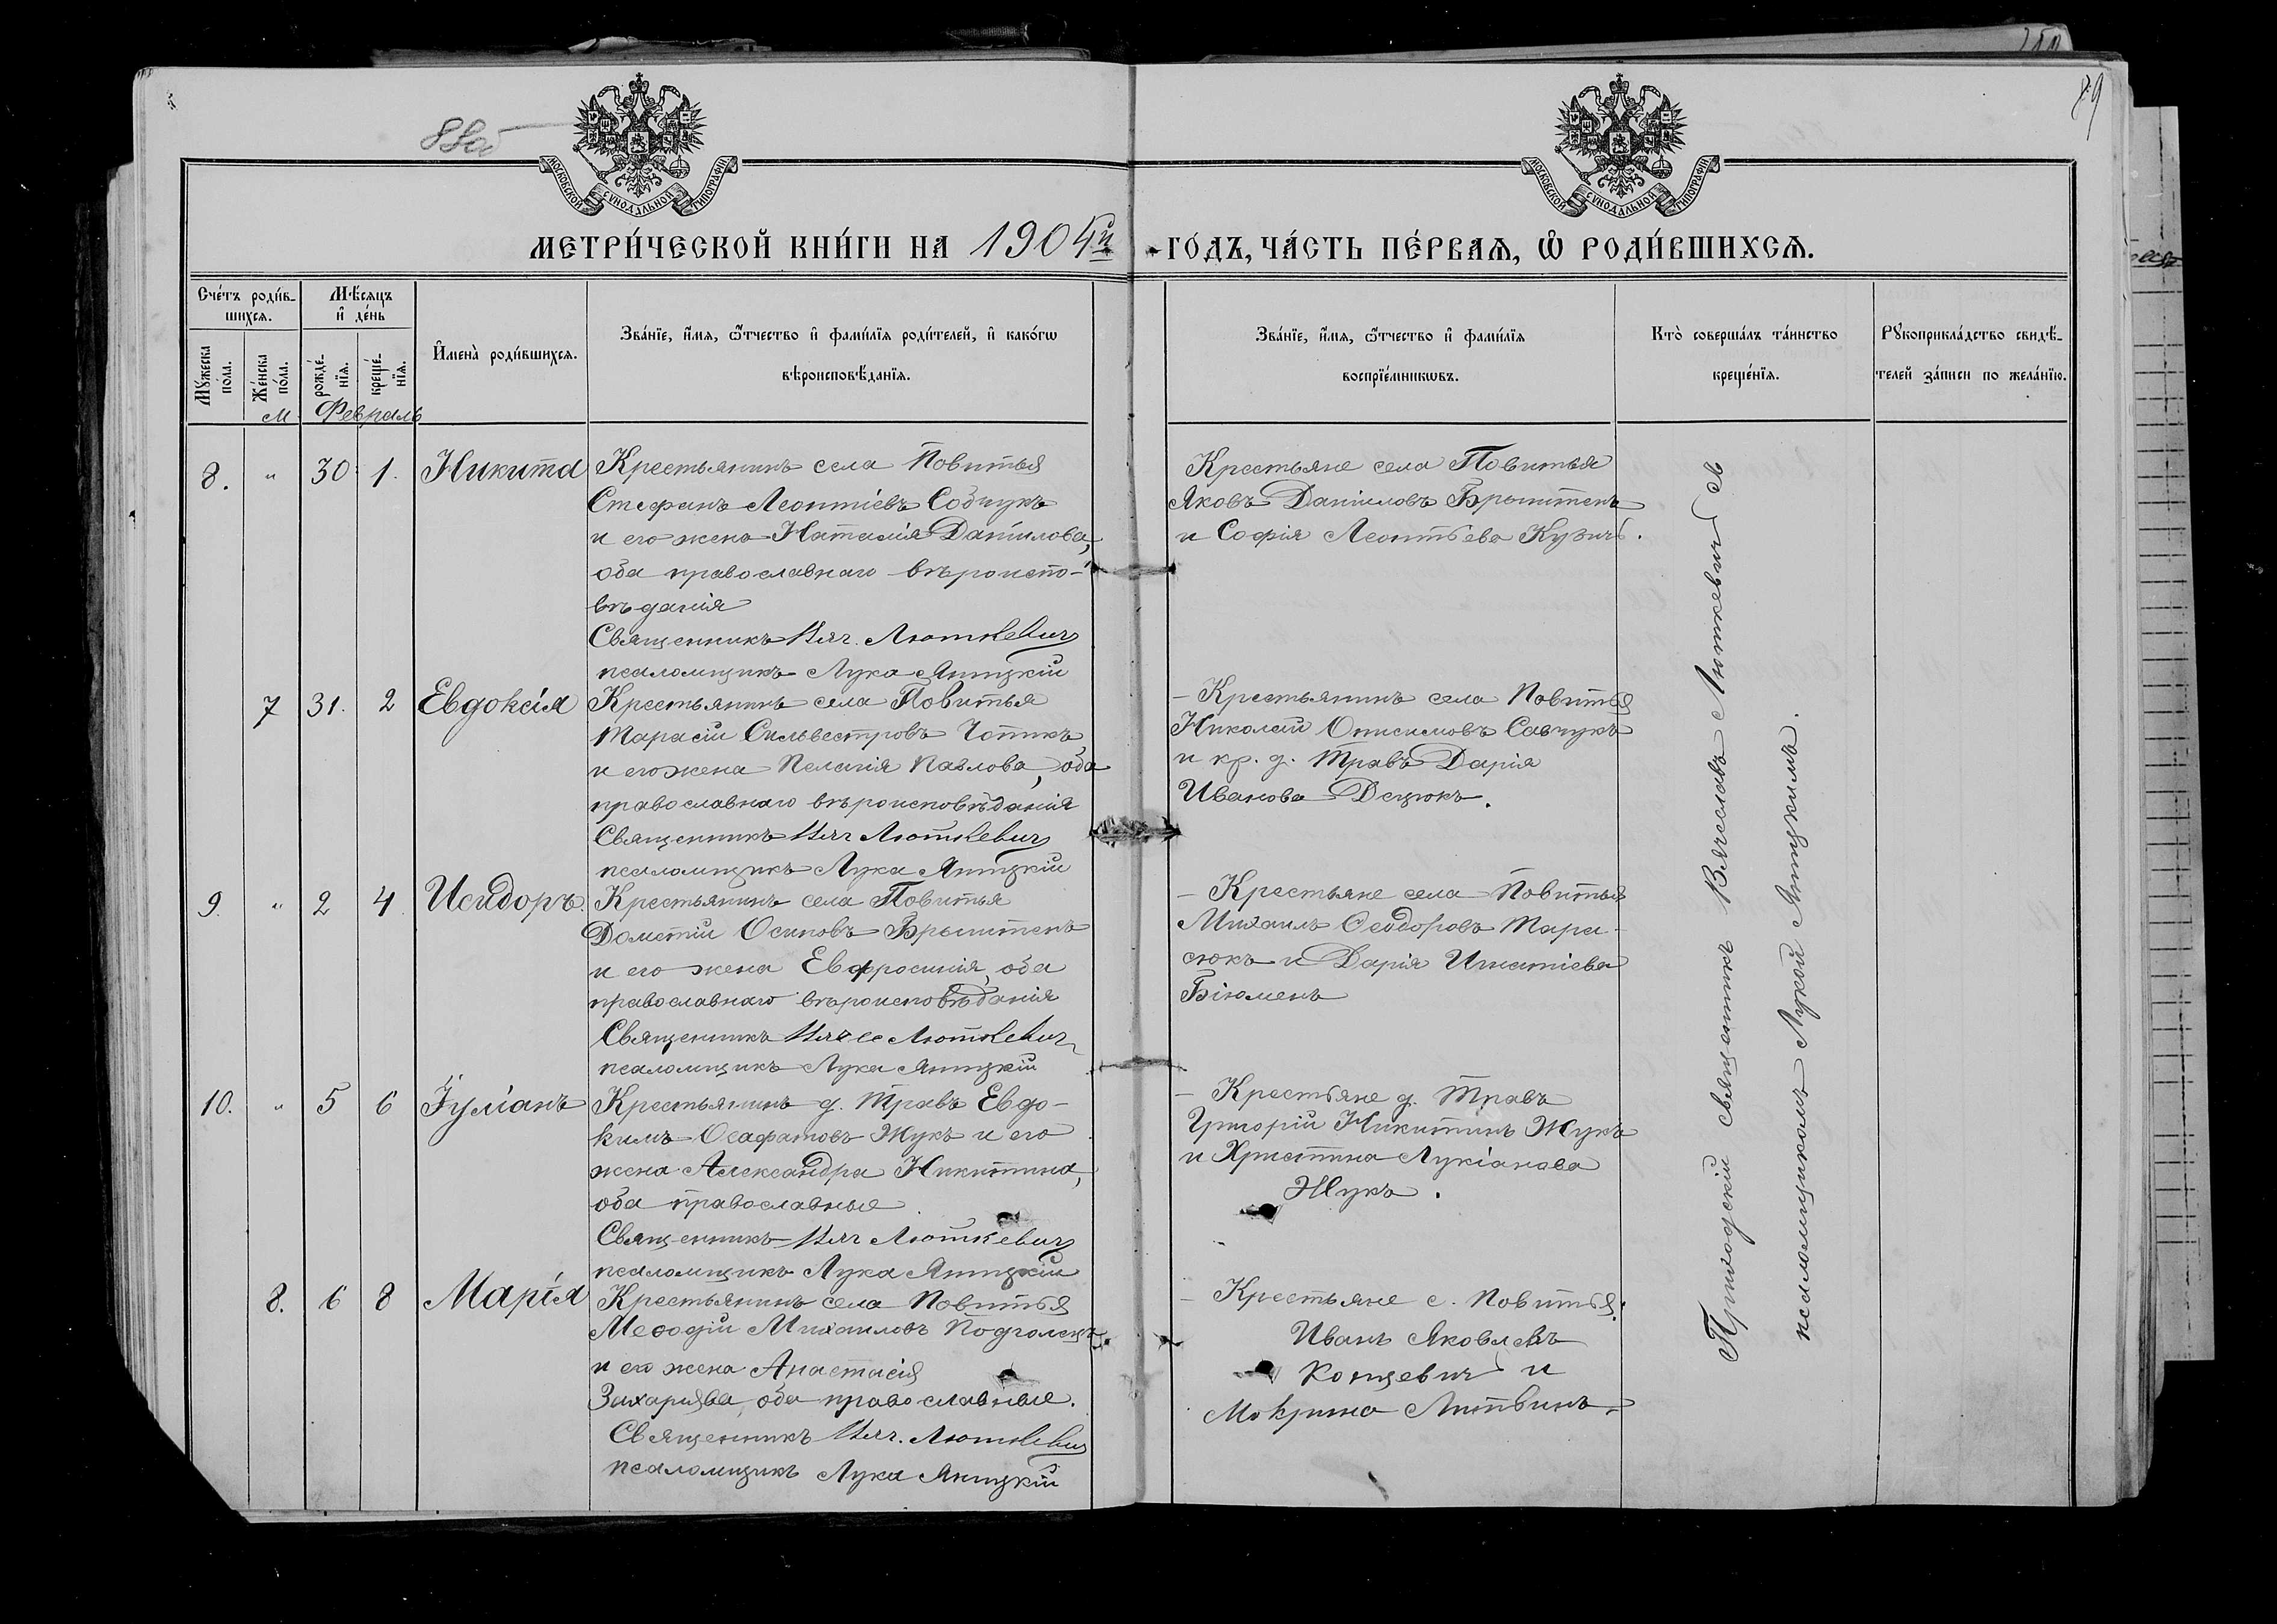 88об
89
МОСКОВСКОЙ СУНОДАЛЬНОЙ ТИПОГРАФІИ
МОСКОВСКОЙ СУНОДАЛЬНОЙ ТИПОГРАФІИ
МЕТРИ́ЧЕСКОЙ КНИ́ГИ НА 1904й ГО́ДЪ, ЧА́СТЬ ПЕ́РВАЯ, Ѡ҆ РОДИ́ВШИХСЯ.
Сче́тъ роди́в-
шихся.
Мѣ́сяцъ
и҆ де́нь
Мꙋ́жеска
по́ла.
Же́нска
по́ла.
рожде́-
нїя.
креще́-
нїя.
И҆мена̀ роди́вшихся.
Зва́нїе, и҆́мя, ѻ҆́тчество и҆ фами́лїя роди́телей, и҆ како́гѡ
вѣроисповѣ́данїя.
Зва́нїе, и҆́мя, ѻ҆́тчество и҆ фами́лїя
воспрїе́мникѡвъ.
Кто̀ соверша́лъ та́инство
креще́нїя.
Рꙋкоприкла́дство свидѣ́-
телей за́писи по жела́нїю.
м. Февраль
8. " 30 1. Никита
Крестьянинъ села Повитья
Стефанъ Леонтіевъ Собчукъ
и его жена Наталія Даніилова,
оба православнаго вѣроиспо-
вѣданія
Священникъ Вяч. Люткевичъ
псаломщикъ Лука Яницкій
Крестьяне села Повитья
Яковъ Даніиловъ Брынтень
и Софія Леонтьева Кузичъ.
7 31. 2 Евдоксія
Крестьянинъ села Повитья
Тарасій Сильвестровъ Чопикъ
и его жена Пелагія Павлова, оба
православнаго вѣроисповѣданія
Священникъ Вяч Люткевичъ
псаломщикъ Лука Яницкій
– Крестьянинъ села Повитья
Николай Онисимовъ Савчукъ
и кр. д. Травъ Дарія
Иванова Децюкъ.
9. " 2 4 Исидоръ.
Крестьянинъ села Повитья
Дометій Осиповъ Брынтень
и его жена Евфросинія, оба
православнаго вѣроисповѣданія
Священникъ Вячес Люткевичъ
псаломщикъ Лука Яницкій
– Крестьяне села Повитья
Михаилъ Ѳеодоровъ Тара-
сюкъ и Дарія Игнатіева
Бігюмень
10. " 5 6 Іуліанъ
Крестьянинъ д. Травъ Евдо-
кимъ Осафатовъ Жукъ и его
жена Александра Никитина,
оба православные
Священникъ Вяч Люткевичъ
псаломщикъ Лука Яницкій
– Крестьяне д. Травъ
Григорій Никитинъ Жукъ
и Христина Лукіанова
Жукъ.
8. 6 8 Марія
Крестьянинъ села Повитья
Меѳодій Михаиловъ Подголецъ
и его жена Анастасія
Захаріева, оба православные.
Священникъ Вяч. Люткевичъ
псаломщикъ Лука Яницкій
– Крестьяне с. Повитья:
Иванъ Яковлевъ
Концевичъ и
Мокрина Литвинъ.
Приходскій священникъ Вячеславъ Люткевичъ съ
псаломщикомъ Лукой Яницкимъ.